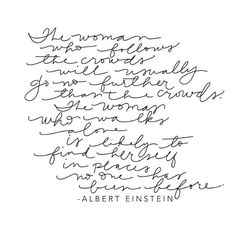 The woman
who follows
the crowds
will usually
go no further
than the crowds.
The woman
who walks
alone
is likely to
find herself
in places
no one has
been before.
-ALBERT EINSTEIN